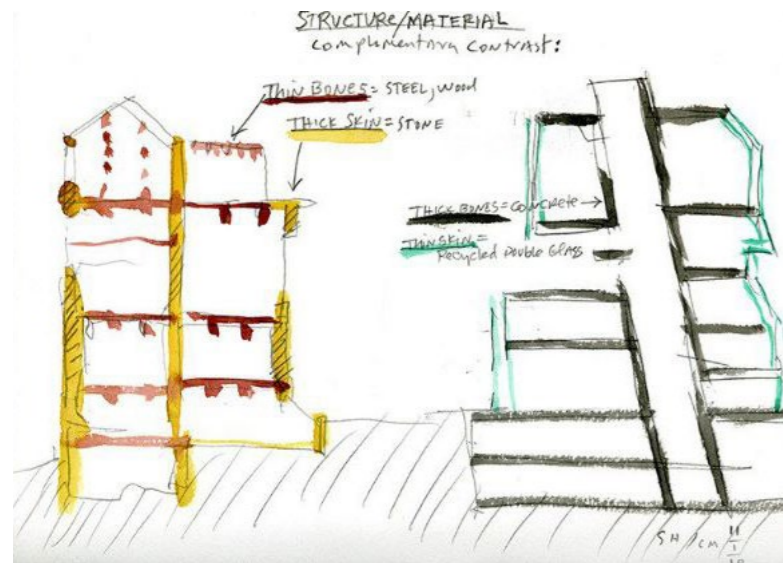 STRUCTURE/MATERIAL
COMPLIMENTARY CONTRAST:
THIN BONES = STEEL, WOOD
THICK SKIN = STONE
THICK BONES = CONCRETE
THIN SKIN =
RECYCLED DOUBLE GLASS
SH / CM 11
1